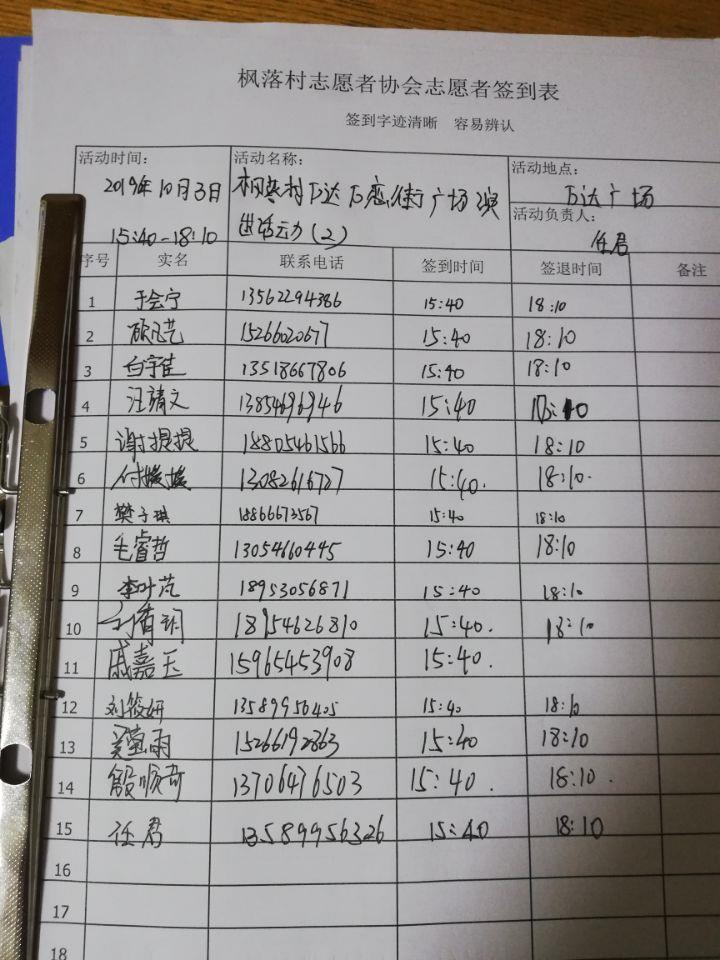 枫落村志愿者协会志愿者签到表
签到字迹清晰 容易辨认
活动时间: 活动名称: 活动地点:
2019年10月3日 万达广场
15:40-18:10 出活动(2) 活动负责人: 任君
序号 实名 联系电话 签到时间 签退时间 备注
1 于会宁 13562294386 15:40 18:10
2 15266020677 15:40 18:10
3 白宇佳 13518667806 15:40 18:10
4 汪靖文 13854696946 15:40 18:10
5 谢提提 18805461566 15:40 18:10
6 付媛媛 13082616727 15:40. 18:10.
7 樊子琪 18866673567 15:40 18:10
8 毛睿哲 13054660445 15:40 18:10
9 李叶芃 18953056871 15:40 18:10
10 18954626810 15:40. 18:10
11 戚嘉玉 15965453908 15:40.
12 刘筱妍 13589956405 15:40 18:10
13 15266192863 15:40 18:10
14 殷顺奇 13706476503 15:40. 18:10.
15 任君 13589956326 15:40 18:10
16
17
18